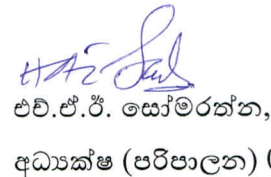 එච්.ඒ.ඊ. සෝමරත්න,
අධ්‍යක්ෂ (පරිපාලන) (